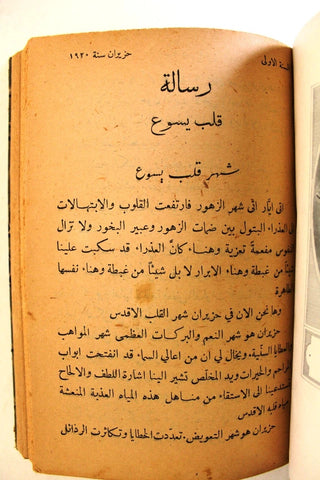 السنة الاولى
حزيران سنة ١٩٢٠
رسالة
قلب يسوع
شهر قلب يسوع
اتى ايّار اتى شهر الزهور فارتفعت القلوب والابتهالات
الى العذراء البتول بين ضمات الزهور وعبير البخور ولا تزال
النفوس مفعمة تعزية وهناء كانّ العذراء قد سكبت علينا
شيئًا من غبطة وهناء الابرار لا بلى شيئًا من غبطة وهناء نفسها
الطاهرة
وها نحن الان في حزيران شهر القلب الاقدس
حزيران هو شهر النعم والبركات العظمى شهر المواهب
والعطايا السنّية. ويخال لي أن من اعالي السماء قد انفتحت ابواب
المراحم والخيرات ويد المخلّص تشير الينا اشارة اللطف والالحاح
تستدعينا الى الاستقاء من مناهل هذه المياه العذبة المنعشة
مياه قلبه الاقدس
حزيران هو شهر التعويض. تعدّدت الخطايا وتكاثرت الرذائل